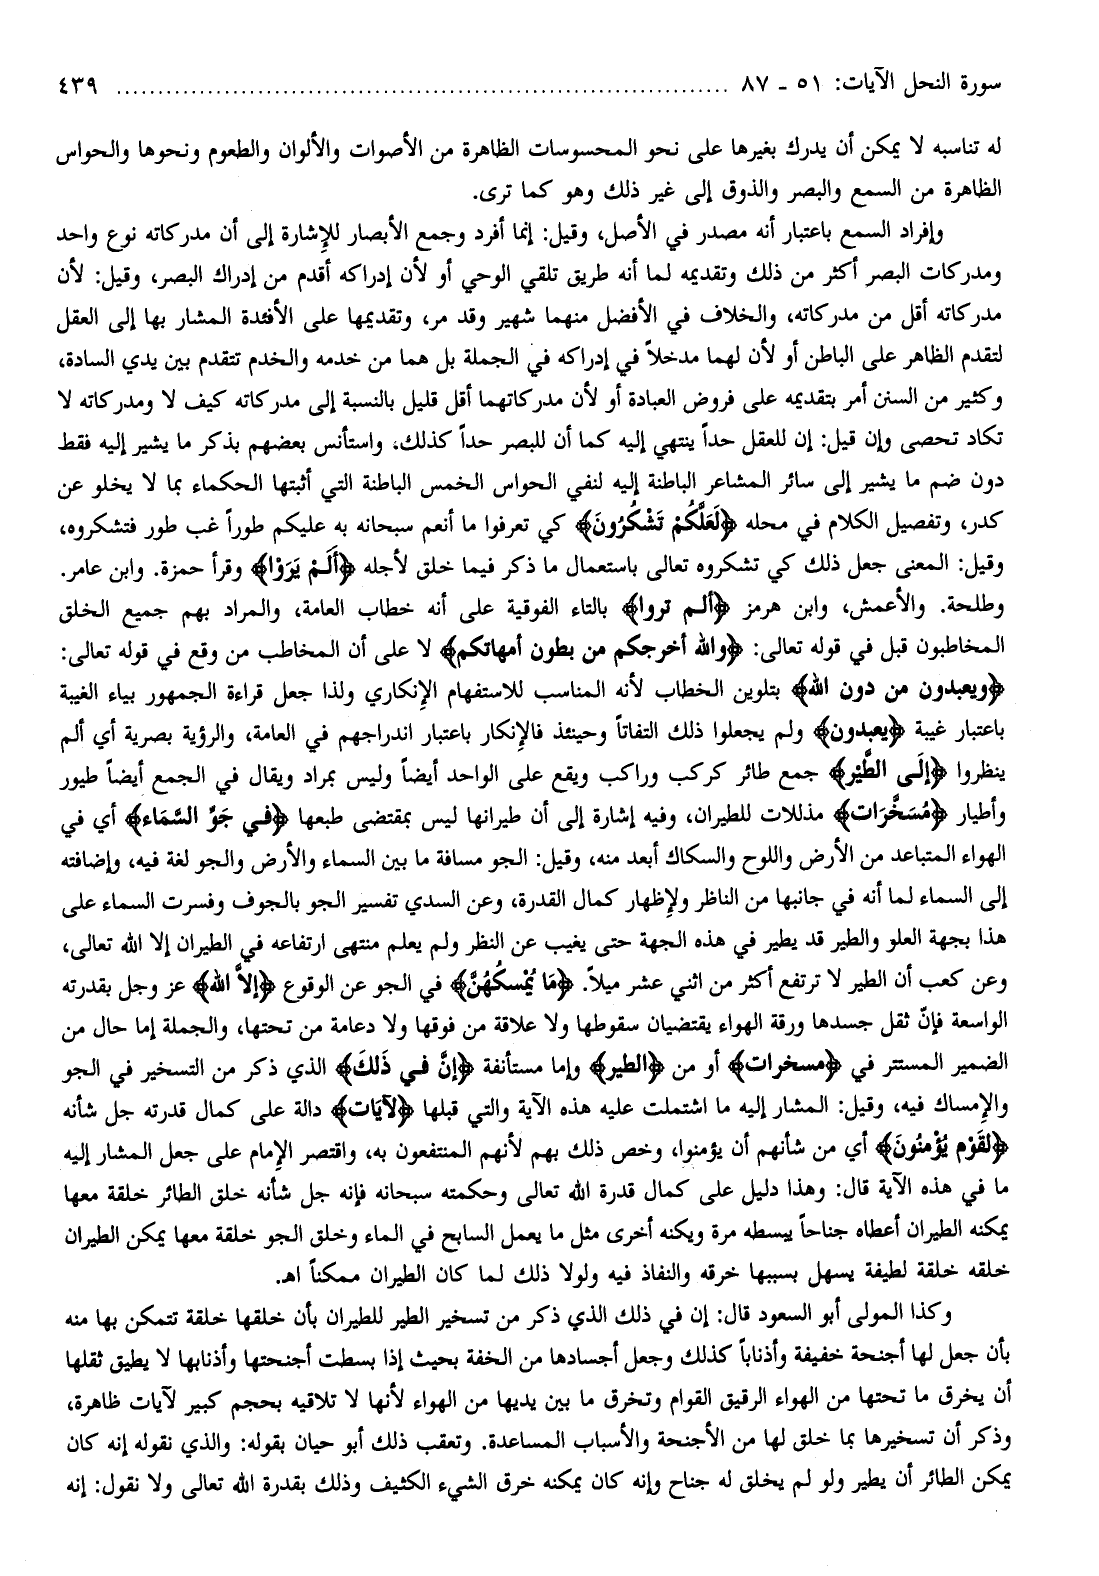 سورة النحل الآيات: ٥١ ـ ٨٧ ........................................................................... ٤٣٩
له تناسبه لا يمكن أن يدرك بغيرها على نحو المحسوسات الظاهرة من الأصوات والألوان والطعوم ونحوها والحواس
الظاهرة من السمع والبصر والذوق إلى غير ذلك وهو كما ترى.
وإفراد السمع باعتبار أنه مصدر في الأصل، وقيل: إنما أفرد وجمع الأبصار للإشارة إلى أن مدركاته نوع واحد
ومدركات البصر أكثر من ذلك وتقديمه لما أنه طريق تلقي الوحي أو لأن إدراكه أقدم من إدراك البصر، وقيل: لأن
مدركاته أقل من مدركاته، والخلاف في الأفضل منهما شهير وقد مر، وتقديمها على الأفئدة المشار بها إلى العقل
لتقدم الظاهر على الباطن أو لأن لهما مدخلاً في إدراكه في الجملة بل هما من خدمه والخدم تتقدم بين يدي السادة،
وكثير من السنن أمر بتقديمه على فروض العبادة أو لأن مدركاتهما أقل قليل بالنسبة إلى مدركاته كيف لا ومدركاته لا
تكاد تحصى وإن قيل: إن للعقل حداً ينتهي إليه كما أن للبصر حداً كذلك، واستأنس بعضهم بذكر ما يشير إليه فقط
دون ضم ما يشير إلى سائر المشاعر الباطنة إليه لنفي الحواس الخمس الباطنة التي أثبتها الحكماء بما لا يخلو عن
كدر، وتفصيل الكلام في محله ﴿لَعَلَّكُمْ تَشْكُرُونَ﴾ كي تعرفوا ما أنعم سبحانه به عليكم طوراً غب طور فتشكروه،
وقيل: المعنى جعل ذلك كي تشكروه تعالى باستعمال ما ذكر فيما خلق لأجله ﴿أَلَمْ يَرَوْا﴾ وقرأ حمزة. وابن عامر.
وطلحة. والأعمش، وابن هرمز ﴿ألم تروا﴾ بالتاء الفوقية على أنه خطاب العامة، والمراد بهم جميع الخلق
المخاطبون قبل في قوله تعالى: ﴿والله أخرجكم من بطون أمهاتكم﴾ لا على أن المخاطب من وقع في قوله تعالى:
﴿ويعبدون من دون الله﴾ بتلوين الخطاب لأنه المناسب للاستفهام الإنكاري ولذا جعل قراءة الجمهور بياء الغيبة
باعتبار غيبة ﴿يعبدون﴾ ولم يجعلوا ذلك التفاتاً وحينئذ فالإنكار باعتبار اندراجهم في العامة، والرؤية بصرية أي ألم
ينظروا ﴿إِلَى الطَّيْرِ﴾ جمع طائر كركب وراكب ويقع على الواحد أيضاً وليس بمراد ويقال في الجمع أيضاً طيور
وأطيار ﴿مُسَخَّرَات﴾ مذللات للطيران، وفيه إشارة إلى أن طيرانها ليس بمقتضى طبعها ﴿في جَوِّ السَّمَاء﴾ أي في
الهواء المتباعد من الأرض واللوح والسكاك أبعد منه، وقيل: الجو مسافة ما بين السماء والأرض والجو لغة فيه، وإضافته
إلى السماء لما أنه في جانبها من الناظر ولإظهار كمال القدرة، وعن السدي تفسير الجو بالجوف وفسرت السماء على
هذا بجهة العلو والطير قد يطير في هذه الجهة حتى يغيب عن النظر ولم يعلم منتهى ارتفاعه في الطيران إلا الله تعالى،
وعن كعب أن الطير لا ترتفع أكثر من اثني عشر ميلاً. ﴿مَا يُمْسكُهُنَّ﴾ في الجو عن الوقوع ﴿إِلاَّ الله﴾ عز وجل بقدرته
الواسعة فإنّ ثقل جسدها ورقة الهواء يقتضيان سقوطها ولا علاقة من فوقها ولا دعامة من تحتها، والجملة إما حال من
الضمير المستتر في ﴿مسخرات﴾ أو من ﴿الطير﴾ وإما مستأنفة ﴿إِنَّ في ذَلكَ﴾ الذي ذكر من التسخير في الجو
والإمساك فيه، وقيل: المشار إليه ما اشتملت عليه هذه الآية والتي قبلها ﴿لآيَات﴾ دالة على كمال قدرته جل شأنه
﴿لقَوْم يُؤْمنُونَ﴾ أي من شأنهم أن يؤمنوا، وخص ذلك بهم لأنهم المنتفعون به، واقتصر الإمام على جعل المشار إليه
ما في هذه الآية قال: وهذا دليل على كمال قدرة الله تعالى وحكمته سبحانه فإنه جل شأنه خلق الطائر خلقة معها
يمكنه الطيران أعطاه جناحاً يبسطه مرة ويكنه أخرى مثل ما يعمل السابح في الماء وخلق الجو خلقة معها يمكن الطيران
خلقه خلقة لطيفة يسهل بسببها خرقه والنفاذ فيه ولولا ذلك لما كان الطيران ممكناً اهـ.
وكذا المولى أبو السعود قال: إن في ذلك الذي ذكر من تسخير الطير للطيران بأن خلقها خلقة تتمكن بها منه
بأن جعل لها أجنحة خفيفة وأذناباً كذلك وجعل أجسادها من الخفة بحيث إذا بسطت أجنحتها وأذنابها لا يطيق ثقلها
أن يخرق ما تحتها من الهواء الرقيق القوام وتخرق ما بين يديها من الهواء لأنها لا تلاقيه بحجم كبير لآيات ظاهرة،
وذكر أن تسخيرها بما خلق لها من الأجنحة والأسباب المساعدة. وتعقب ذلك أبو حيان بقوله: والذي نقوله إنه كان
يمكن الطائر أن يطير ولو لم يخلق له جناح وإنه كان يمكنه خرق الشيء الكثيف وذلك بقدرة الله تعالى ولا نقول: إنه